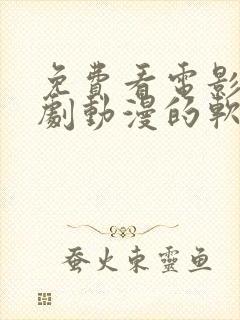 免費看電影
劇動漫的軟
蚕火東靈鱼